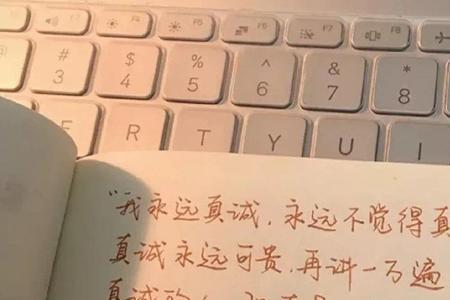 F4 F5 F6 F7 F8
# $ % ^ & *
3 4 5 6 7 8
R T Y U
"我永远真诚,永远不觉得真
真诚永远可贵,再讲一万遍